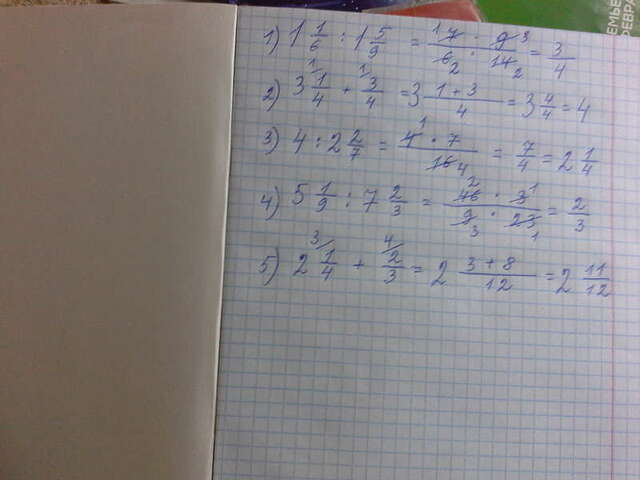 СЕМЬЕ
ФЕВРАЛ
1) 1 1/6 : 1 5/9 = 7 · 9 / 6 · 14 = 3/4
2) 3 1/4 + 3/4 = 3 1+3/4 = 3 4/4 = 4
3) 4 : 2 2/7 = 4 · 7 / 16 = 7/4 = 2 1/4
4) 5 1/9 : 7 2/3 = 46 · 3 / 9 · 23 = 2/3
5) 2 1/4 + 2/3 = 2 3+8/12 = 2 11/12